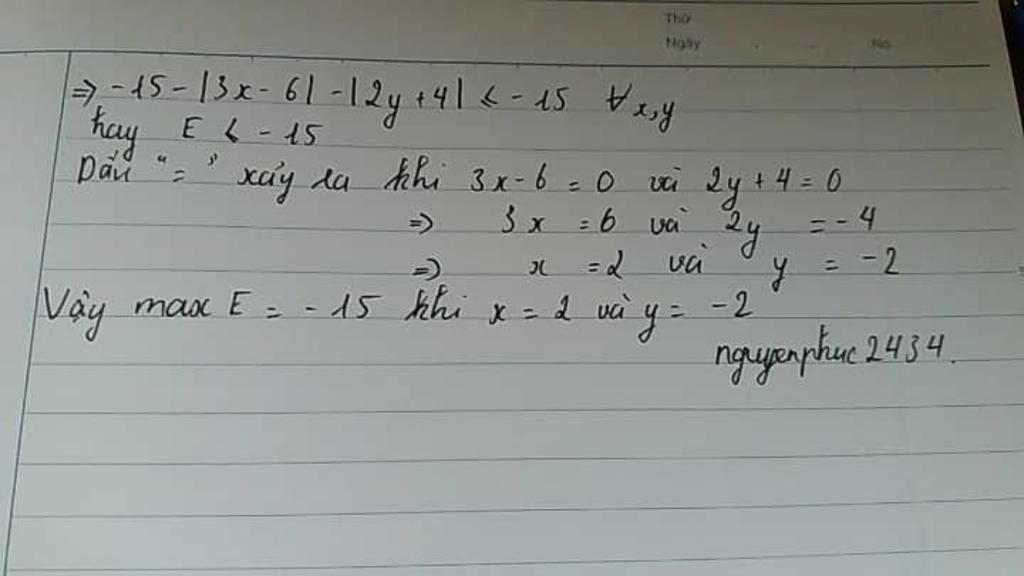 Thứ
Ngày . . No
=> -15 - |3x - 6| - |2y + 4| < -15 ∀x,y
hay E < -15
Dấu "=" xảy ra khi 3x - 6 = 0 và 2y + 4 = 0
=> 3x = 6 và 2y = -4
=> x = 2 và y = -2
Vậy max E = -15 khi x = 2 và y = -2
nguyenphuc2434.